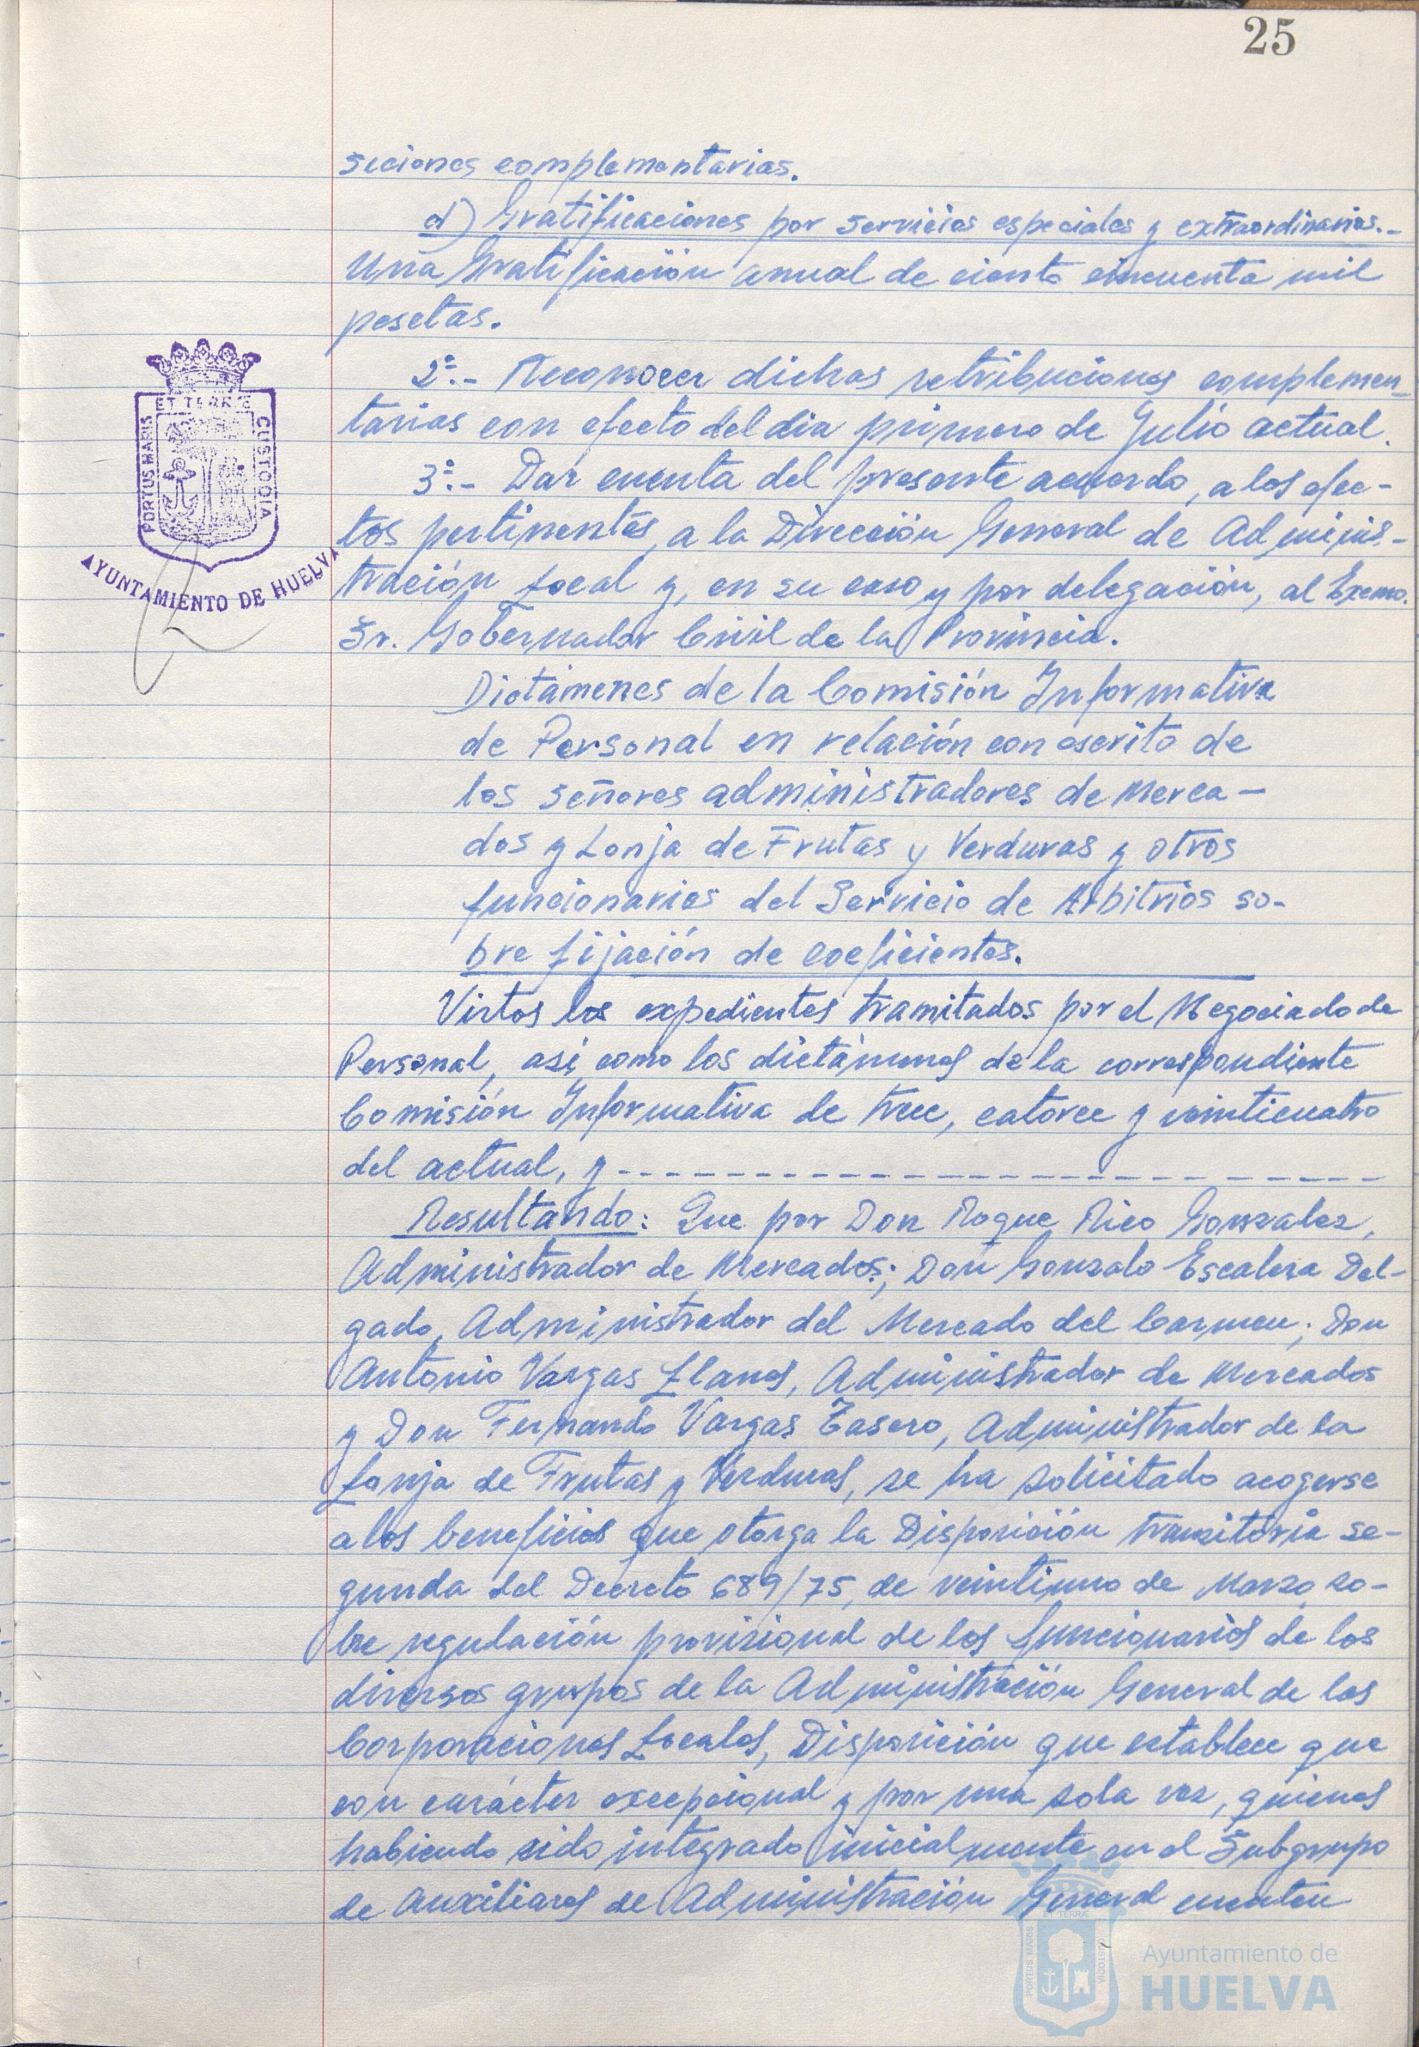 25
siciones complementarias.
d) Gratificaciones por servicios especiales y extraordinarios.-
Una Gratificación anual de ciento cincuenta mil
pesetas.
2º.- Reconocer dichas retribuciones complemen-
tarias con efecto del dia primero de Julio actual.
3º.- Dar cuenta del presente acuerdo, a los efec-
tos pertinentes, a la Dirección General de Adminis-
tración Local y, en su caso y por delegación, al Excmo.
Sr. Gobernador Civil de la Provincia.
Dictámenes de la Comisión Informativa
de Personal en relación con escrito de
los señores administradores de Merca-
dos y Lonja de Frutas y Verduras y otros
funcionarios del Servicio de Arbitrios so-
bre fijación de coeficientes.
Vistos los expedientes tramitados por el Negociado de
Personal, asi como los dictámenes de la correspondiente
Comisión Informativa de trece, catorce y veinticuatro
del actual, y ---------------------------
Resultando: Que por Don Roque Rico Gonzalez,
Administrador de Mercados; Don Gonzalo Escalera Del-
gado, Administrador del Mercado del Carmen; Don
Antonio Vargas Llanes, Administrador de Mercados
y Don Fernando Vargas Tasero, Administrador de la
Lonja de Frutas y Verduras, se ha solicitado acogerse
a los beneficios que otorga la Disposición transitoria se-
gunda del Decreto 689/75, de veintiuno de Marzo, so-
bre regulación provisional de los funcionarios de los
diversos grupos de la Administración General de las
Corporaciones Locales, Disposición que establece que
con carácter excepcional y por una sola vez, quienes
habiendo sido integrado inicialmente en el Subgrupo
de Auxiliares de Administración General cuenten
ET TERRE
PORTUS MARIS
CUSTODIA
AYUNTAMIENTO DE HUELVA
Ayuntamiento de
HUELVA